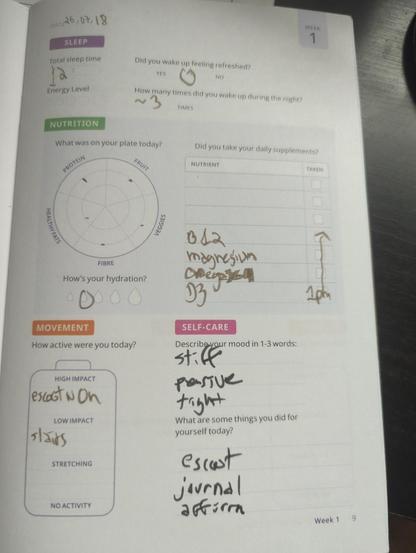 26.07.18
WEEK
1
SLEEP
Total sleep time
12
Energy Level
Did you wake up feeling refreshed?
YES NO
How many times did you wake up during the night?
~3 TIMES
NUTRITION
What was on your plate today?
PROTEIN
FRUIT
VEGGIES
FIBRE
HEALTHY FATS
How's your hydration?
Did you take your daily supplements?
NUTRIENT TAKEN
B12
magnesium
D3 1pm
MOVEMENT
How active were you today?
HIGH IMPACT
LOW IMPACT
stairs
STRETCHING
NO ACTIVITY
SELF-CARE
Describe your mood in 1-3 words:
stiff
tight
What are some things you did for
yourself today?
journal
affirm
Week 1 9